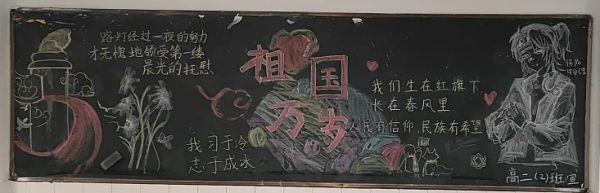 路灯经过一夜的努力
才无愧地领受第一缕
晨光的抚慰
祖国
万岁
我习于冷
志于成冰
我们生在红旗下
长在春风里
人民有信仰,民族有希望
高二(2)班宣